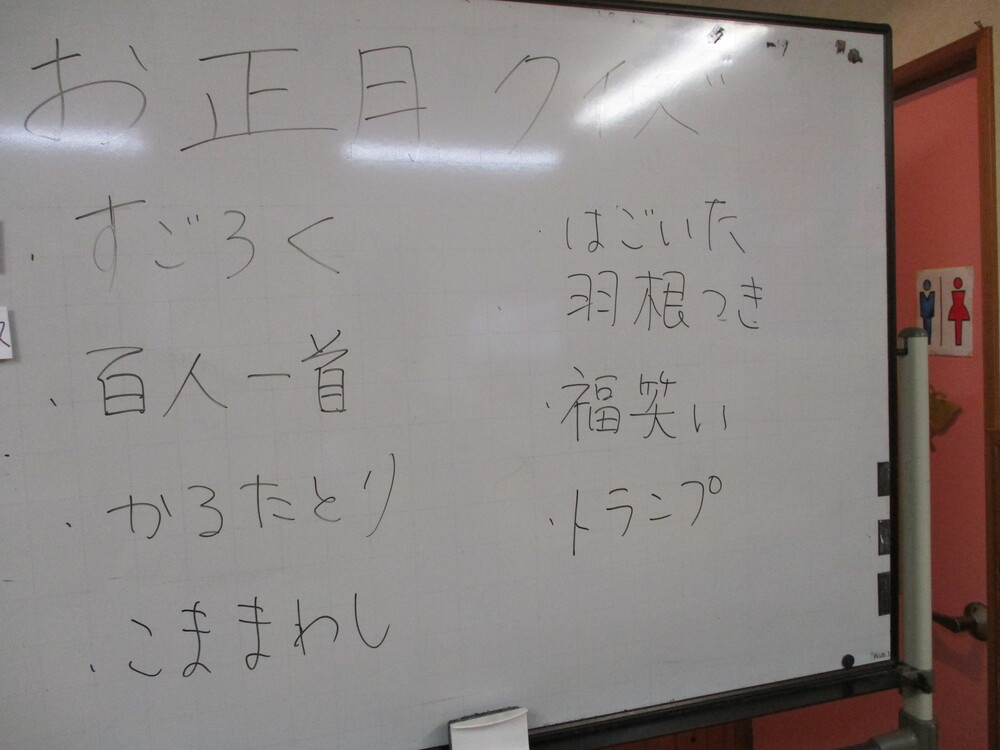 お正月クイズ
・すごろく
・百人一首
・かるたとり
・こままわし
・はごいた
羽根つき
・福笑い
・トランプ